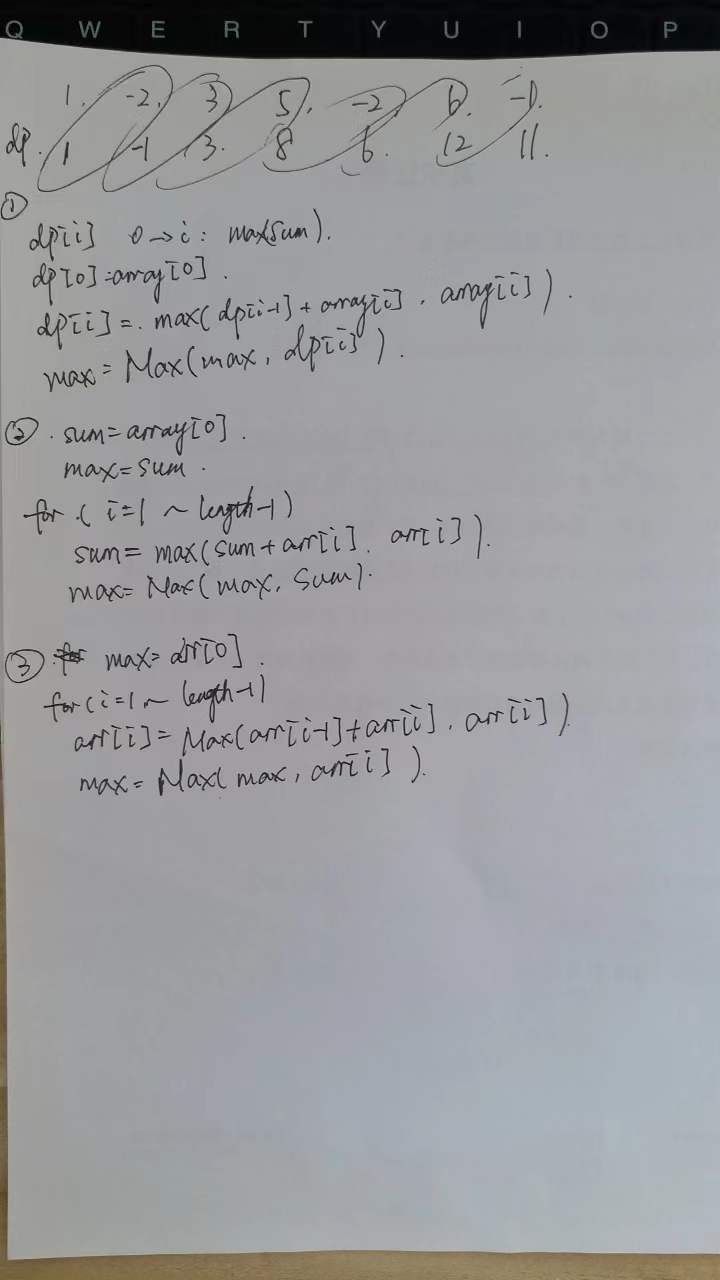 Q W E R T Y U I O P
1. -2. 3 5. -2 6. -1.
dp. 1 -1 3. 8 6. 12 11.
①
dp[i] 0→i: max(sum).
dp[0]=array[0].
dp[i]=. max(dp[i-1]+array[i], array[i]).
max=Max(max, dp[i]).
② . sum=array[0].
max=sum.
for.(i=1~length-1)
sum=max(sum+arr[i], arr[i]).
max=Max(max, sum).
③ max=arr[0].
for(i=1~length-1)
arr[i]=Max(arr[i-1]+arr[i], arr[i]).
max=Max(max, arr[i]).